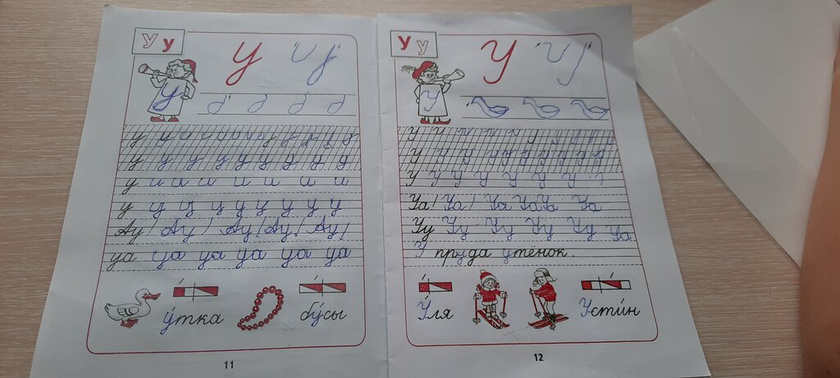 У у
У
у
у у у у у у у у у
у у у у у у у у у
у и и и и и и и
у у у у у у у у
Ау! Ау! Ау! Ау! Ау!
уа уа уа уа уа уа
у́тка
бу́сы
11
У у
У
У
У У У У У У У У
Уа! Уа! Уа Уа Уа Уа
Уу Уу Уу Уу Уу Уа
У пруда утёнок.
У́ля
Усти́н
12